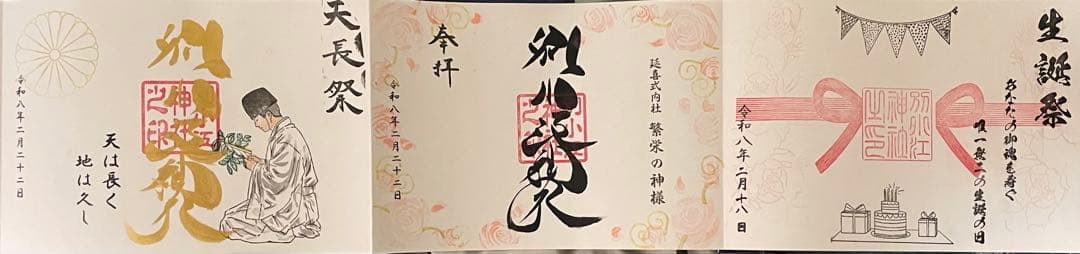 生誕祭
あなたの御魂を寿ぐ
唯一無二の生誕の日
別小江
神社
之印
令和八年二月十八日
延喜式内社 繁栄の神様
別小江神社
奉拝
令和八年二月二十二日
天長祭
別小江神社
天は長く
地は久し
令和八年二月二十二日